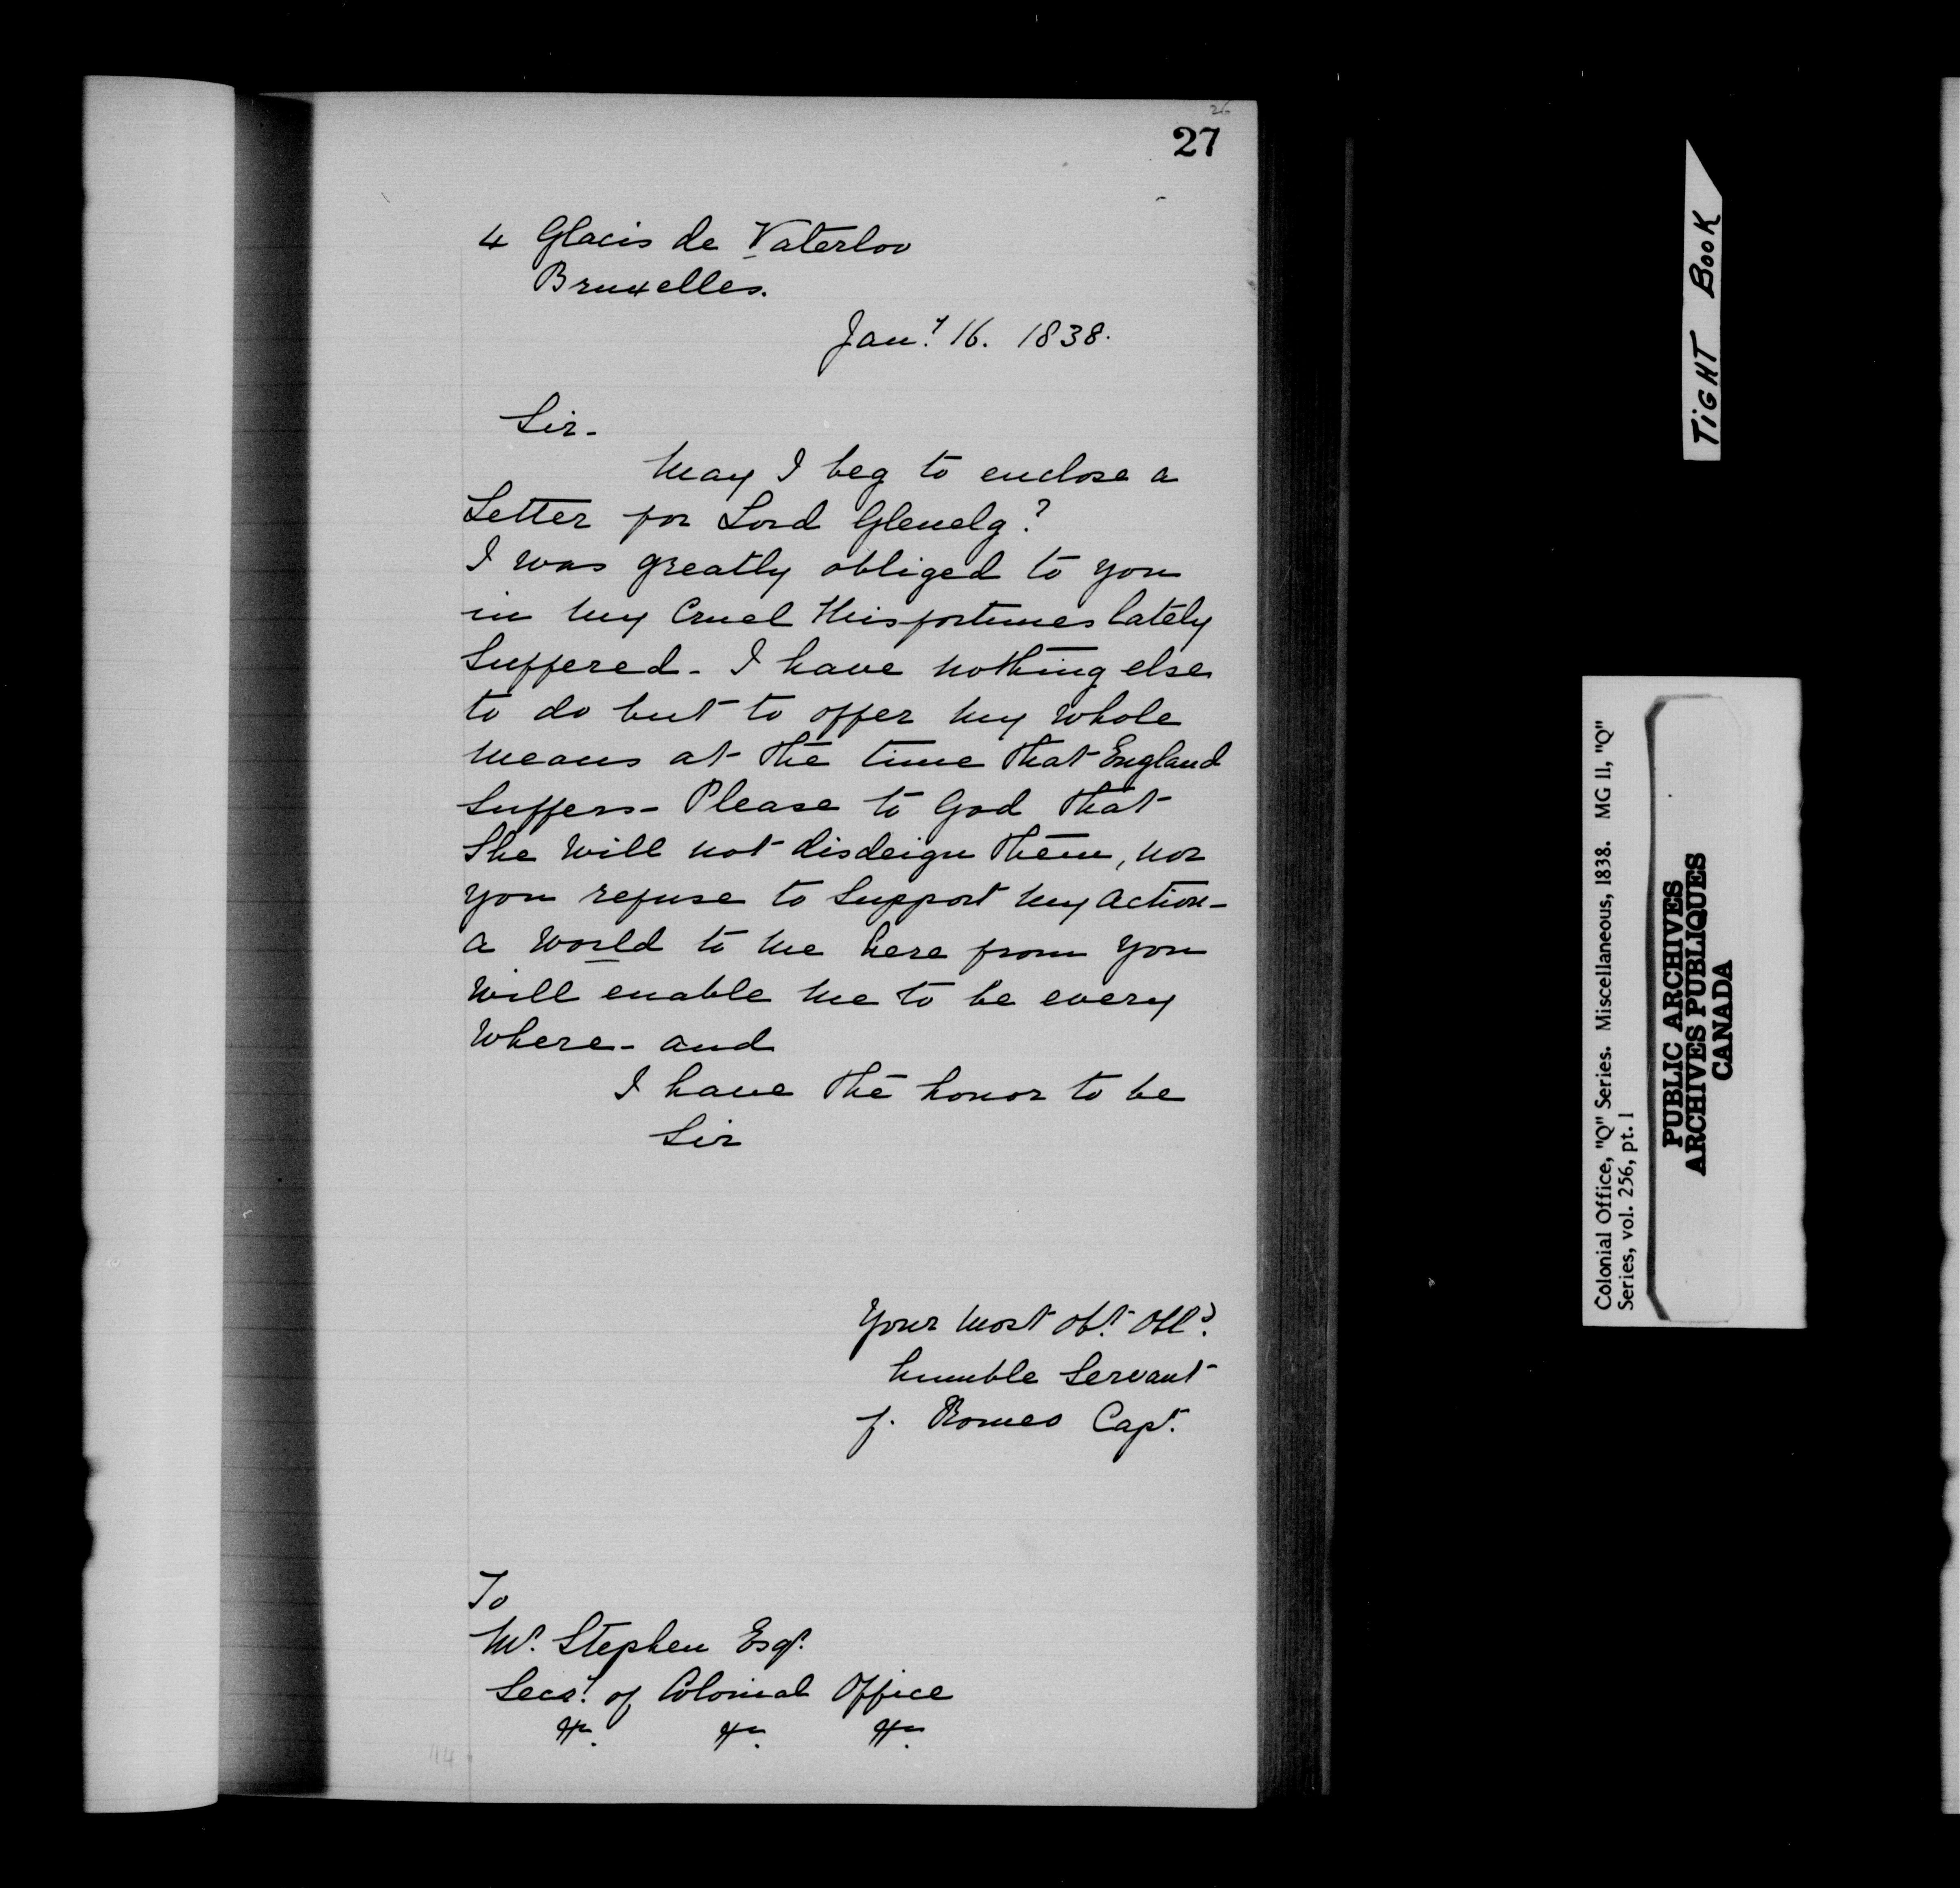 26
27
4 Glacis de Vaterloo
Bruxelles.
Jan.y 16. 1838.
Sir-
May I beg to enclose a
Letter for Lord Glenelg?
I was greatly obliged to you
in my Cruel Misfortunes lately
Suffered - I have nothing else
to do but to offer my whole
means at the time that England
Suffers - Please to God that
She will not disdeign them, nor
you refuse to Support my action -
a World to me here from you
Will enable me to be every
Where - and
I have the honor to be
Sir
Your most obt. Obld.
humble Servant
J. Romeo Capt.
To
Mr. Stephen Esqr.
Secry. of Colonial Office
&c. &c. &c.
114
TIGHT BOOK
Colonial Office, "Q" Series. Miscellaneous, 1838. MG 11, "Q"
Series, vol. 256, pt. 1
PUBLIC ARCHIVES
ARCHIVES PUBLIQUES
CANADA